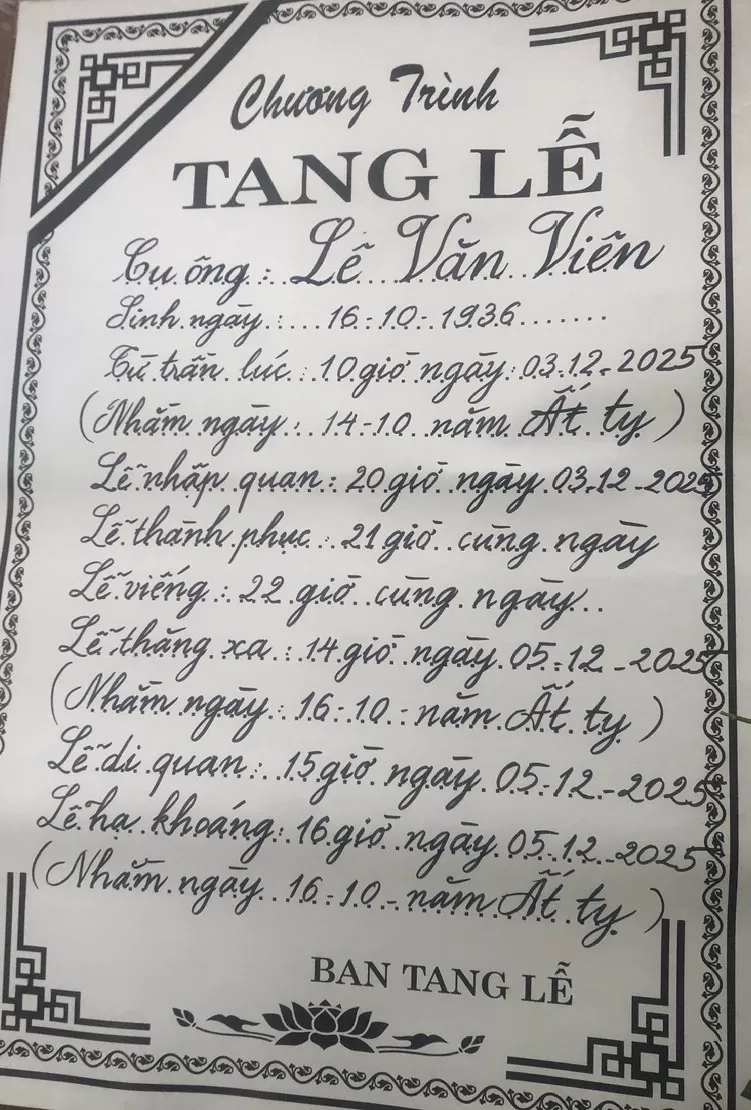 Chương Trình
TANG LỄ
Cụ ông: Lê Văn Viên
Sinh ngày: 16-10-1936
Từ trần lúc: 10 giờ ngày 03-12-2025
(Nhằm ngày: 14-10 năm Ất tỵ)
Lễ nhập quan: 20 giờ ngày 03-12-2025
Lễ thành phục: 21 giờ cùng ngày
Lễ viếng: 22 giờ cùng ngày
Lễ thăng xa: 14 giờ ngày 05-12-2025
(Nhằm ngày: 16-10- năm Ất tỵ)
Lễ di quan: 15 giờ ngày 05-12-2025
Lễ hạ khoáng: 16 giờ ngày 05-12-2025
(Nhằm ngày 16-10- năm Ất tỵ)
BAN TANG LỄ